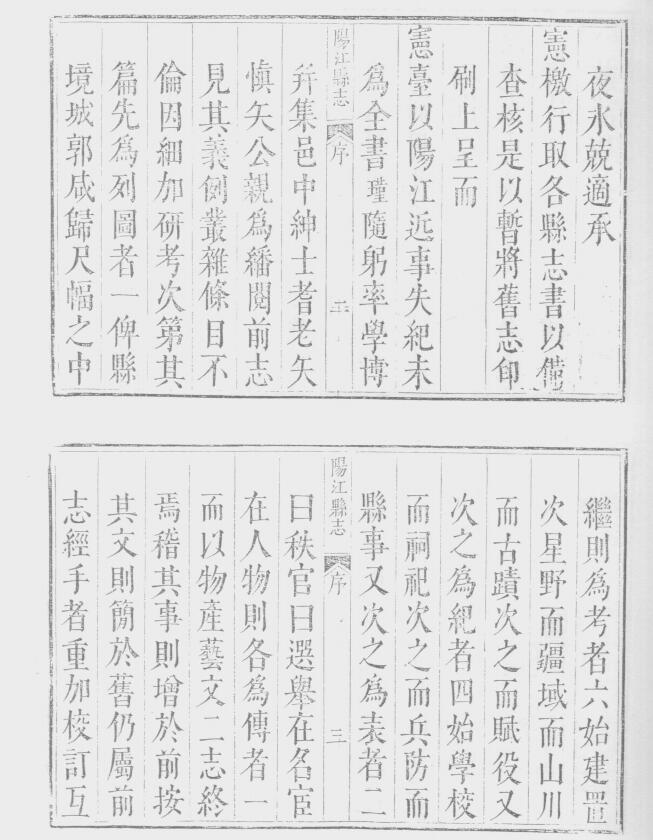 夜永兢適承
憲檄行取各縣志書以備
查核是以暫將舊志印
刷上呈而
憲臺以陽江近事失紀未
為全書瑾隨躬率學博
陽江縣志 序 二
幷集邑中紳士耆老矢
愼矢公親為繙閱前志
見其義例叢雜條目不
倫因細加研考次第其
篇先為列圖者一俾縣
境城郭咸歸尺幅之中
繼則為考者六始建置
次星野而疆域而山川
而古蹟次之而賦役又
次之為紀者四始學校
而祠祀次之而兵防而
縣事又次之為表者二
陽江縣志 序 三
曰秩官曰選舉在名宦
在人物則各為傳者一
而以物產藝文二志終
焉稽其事則增於前按
其文則簡於舊仍屬前
志經手者重加校訂互